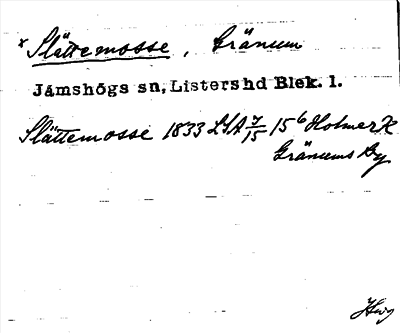 x Slättemosse, Gränum
Jämshögs sn, Listershd Blek. l.
Slättemosse 1833 LSA 7/15 15 b Holmer K
Gränums By